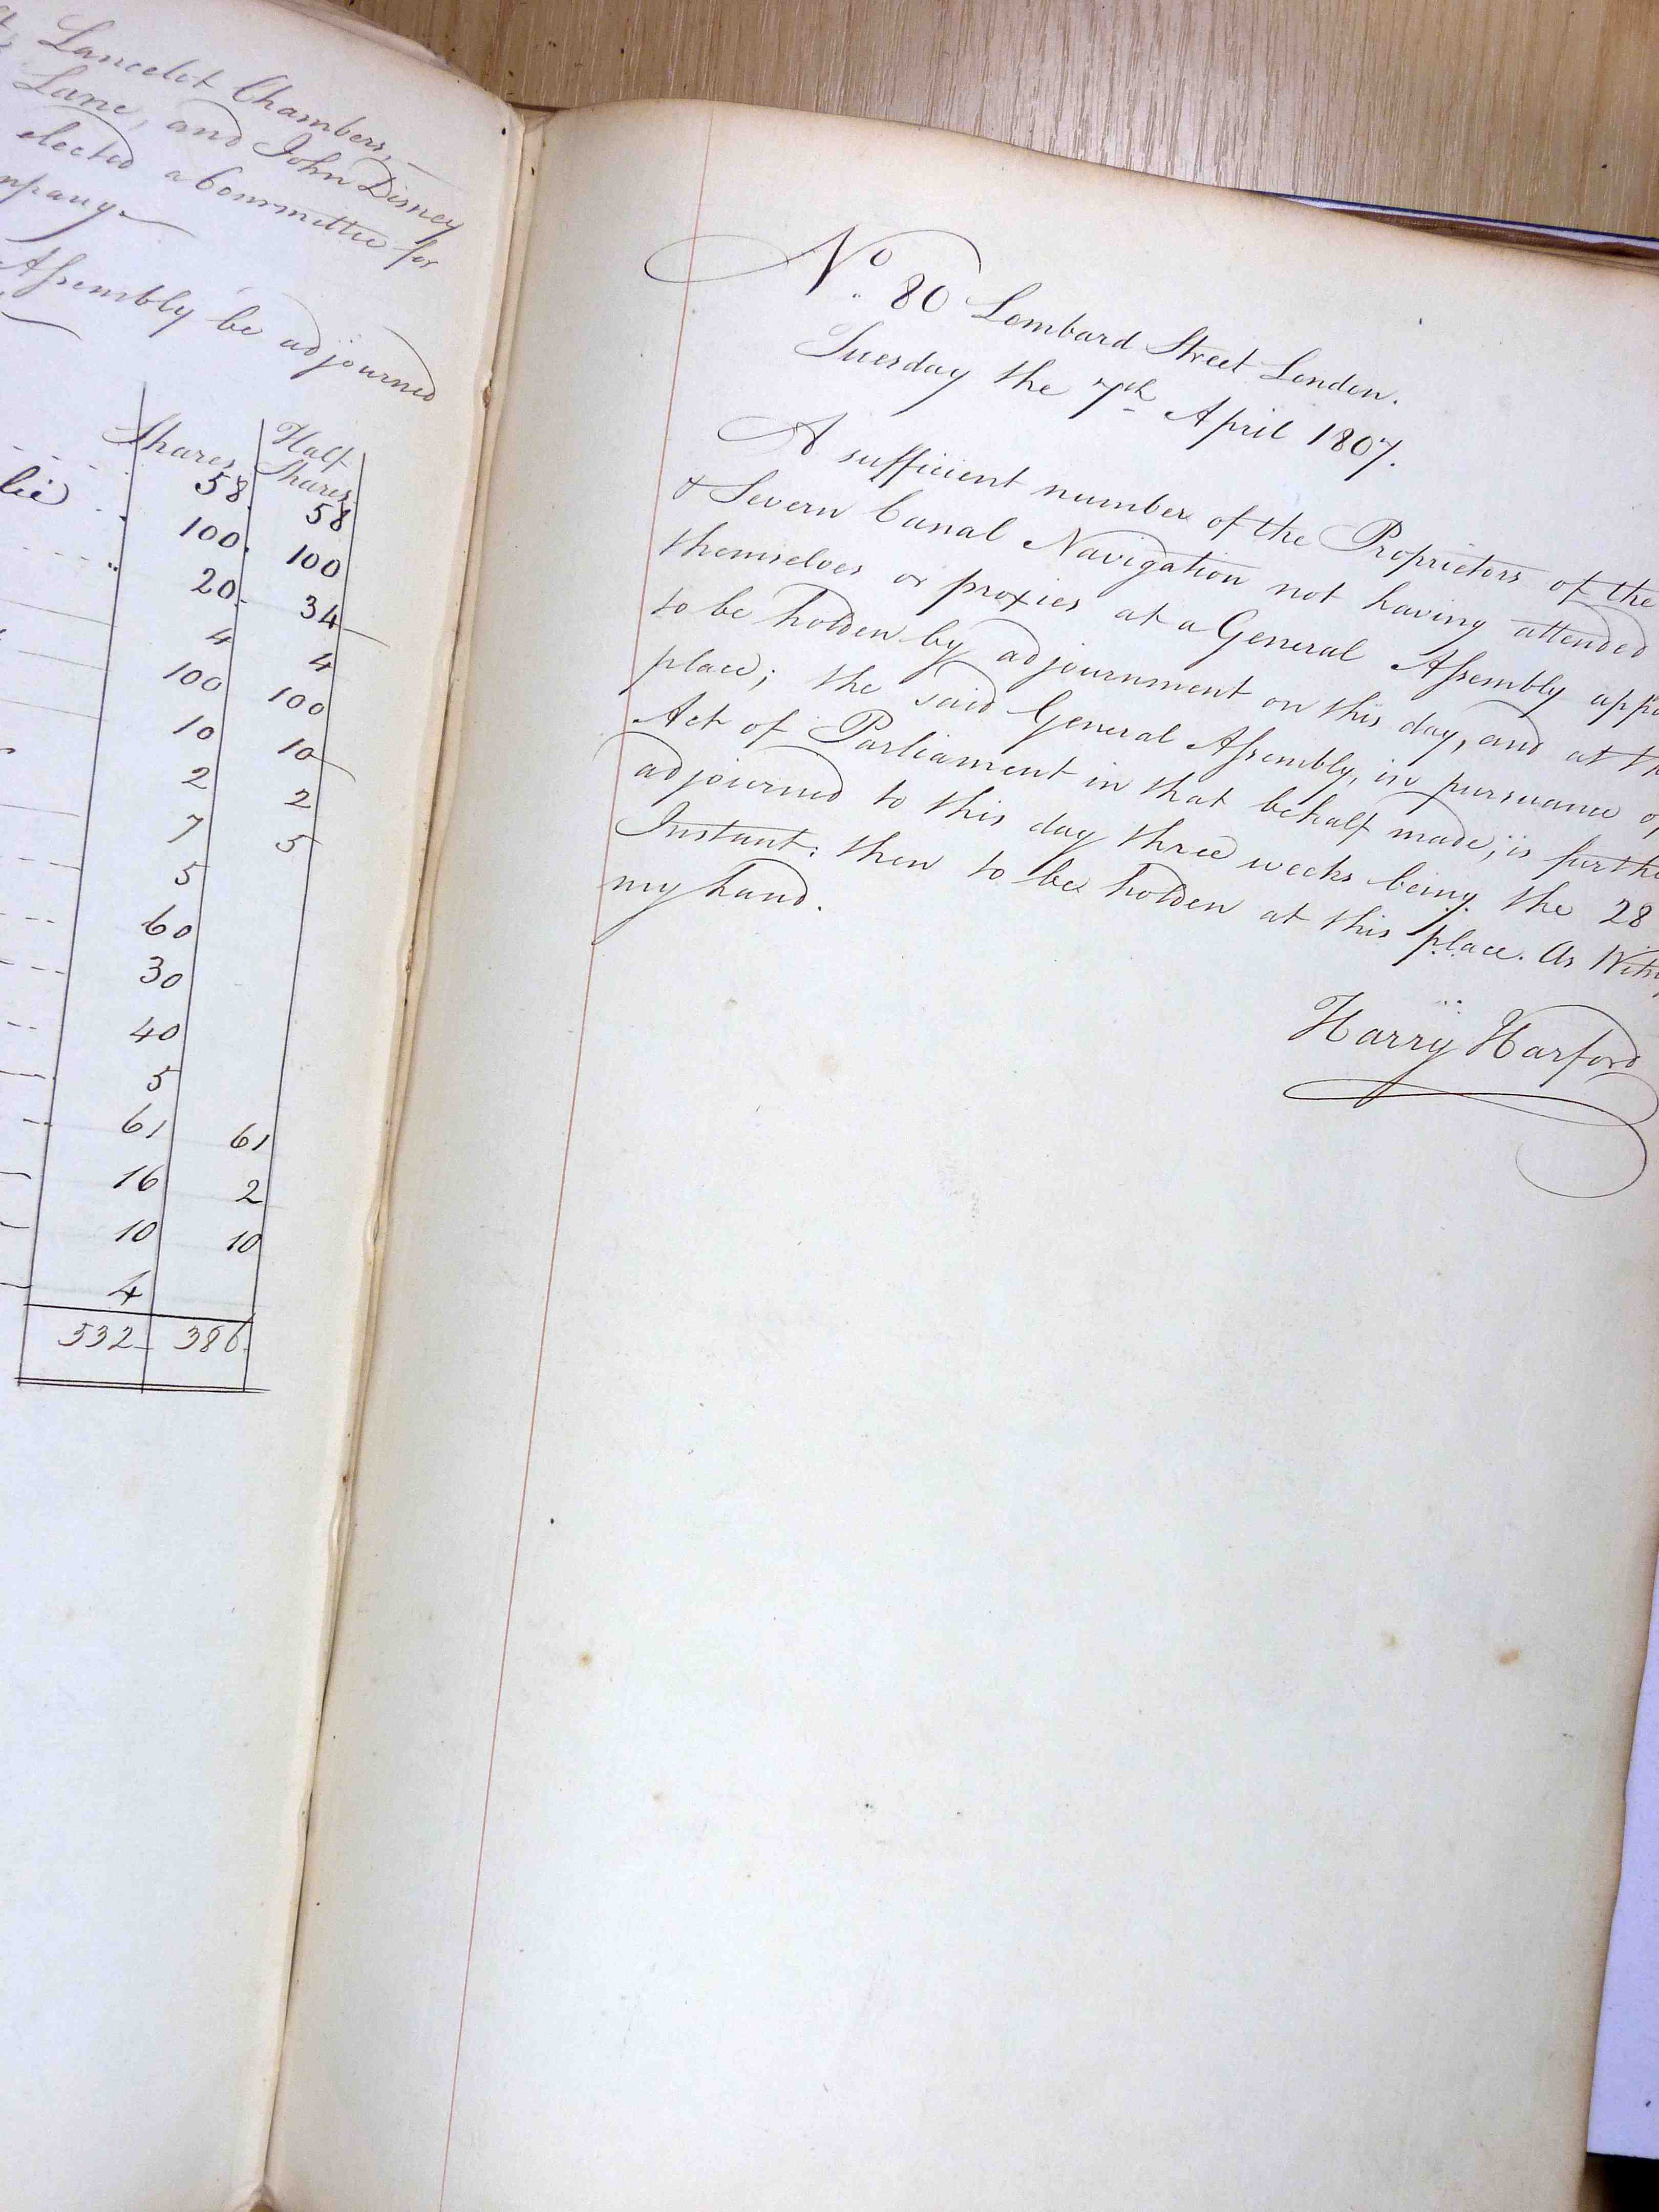 Lancelot Chambers,
Lane, and John Disney
elected a Committee for
Assembly be adjourned
Shares Half Shares
58 58
100 100
20 34
4 4
100 100
10 10
2 2
7 5
5
60
30
40
5
61 61
16 2
10 10
4
532 386
No. 80 Lombard Street London.
Tuesday the 7th April 1807.
A sufficient number of the Proprietors of the
& Severn Canal Navigation not having attended
themselves or proxies at a General Assembly
to be holden by adjournment on this day, and at
place; the said General Assembly, in pursuance
Act of Parliament in that behalf made, is
adjourned to this day three weeks being the 28
Instant: then to be holden at this place. As
my hand.
Harry Harford